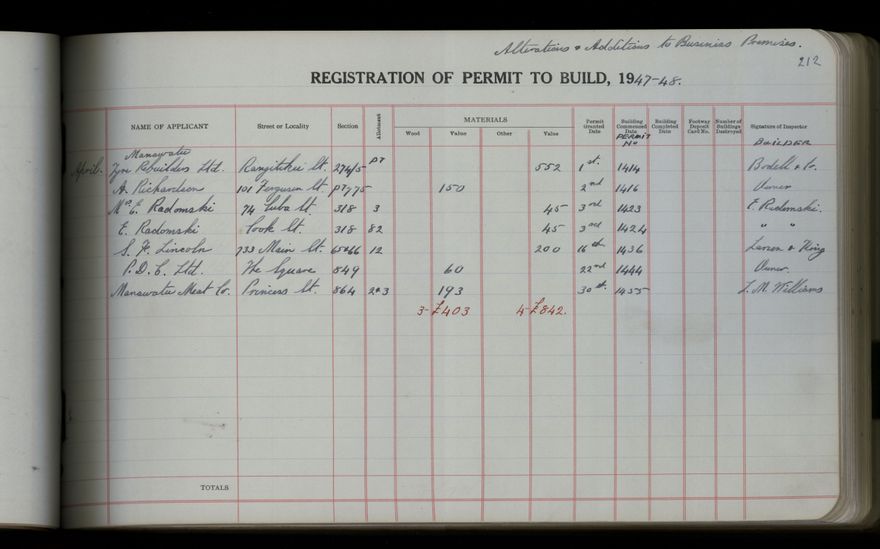 Alterations & Additions to Business Premises.
212
REGISTRATION OF PERMIT TO BUILD, 1947-48.
NAME OF APPLICANT Street or Locality Section Allotment MATERIALS Wood Value Other Value Permit Granted Date Building Commenced Date PERMIT No Building Completed Date Footway Deposit Card No. Number of Buildings Destroyed Signature of Inspector BUILDER
Manawatu
April. Tyre Rebuilders Ltd. Rangitikei St. 274/5 PT 552 1st. 1414 Bodell & Co.
A. Richardson 101 Ferguson St PT 775 150 2nd 1416 Owner
Mrs E. Radomski 74 Cuba St. 318 3 45 3rd 1423 E. Radomski.
E. Radomski Cook St. 318 82 45 3rd 1424 " "
S. F. Lincoln 733 Main St. 65&66 12 200 16th 1436 Larsen & King
P.D.C. Ltd. The Square 849 60 22nd 1444 Owner.
Manawatu Meat Co. Princess St. 864 2&3 193 30th. 1455 L. M. Williams
3-£403 4-£842.
TOTALS